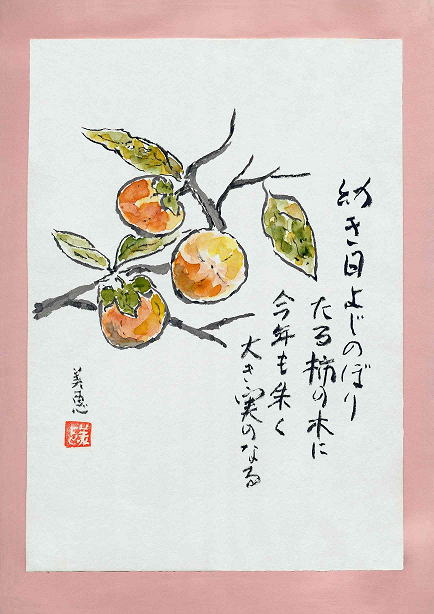 幼き日よじのぼり
たる柿の木に
今年も朱く
大き実のなる
美恵